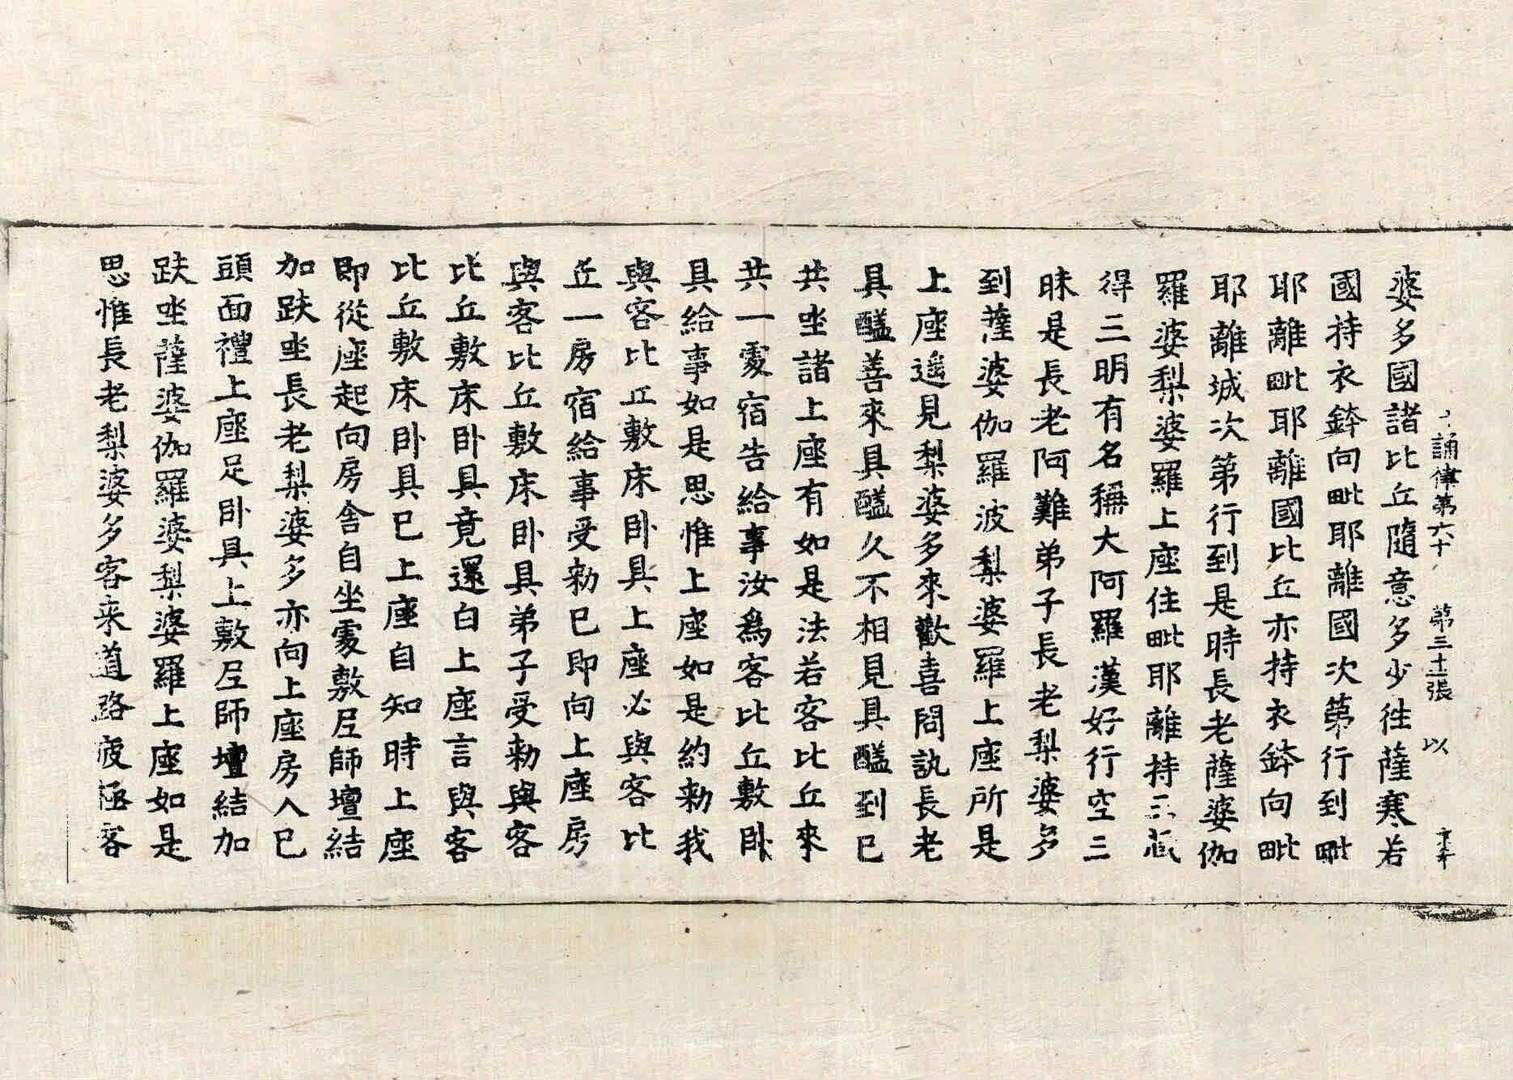 誦律第六十 第三十二張 以
婆多國諸比丘隨意多少往薩寒若
國持衣鉢向毗耶離國次第行到毗
耶離毗耶離國比丘亦持衣鉢向毗
耶離城次第行到是時長老薩婆伽
羅婆梨婆羅上座住毗耶離持三藏
得三明有名稱大阿羅漢好行空三
昧是長老阿難弟子長老梨婆多
到薩婆伽羅波梨婆羅上座所是
上座遥見梨婆多來歡喜問訊長老
具醯善來具醯久不相見具醯到已
共坐諸上座有如是法若客比丘來
共一處宿告給事汝為客比丘敷卧
具給事如是思惟上座如是約勑我
與客比丘敷床卧具上座必與客比
丘一房宿給事受勑已即向上座房
與客比丘敷床卧具弟子受勑與客
比丘敷床卧具竟還白上座言與客
比丘敷床卧具已上座自知時上座
即從座起向房舍自坐處敷尼師壇結
加趺坐長老梨婆多亦向上座房入已
頭面禮上座足卧具上敷尼師壇結加
趺坐薩婆伽羅婆梨婆羅上座如是
思惟長老梨婆多客来道路疲極客